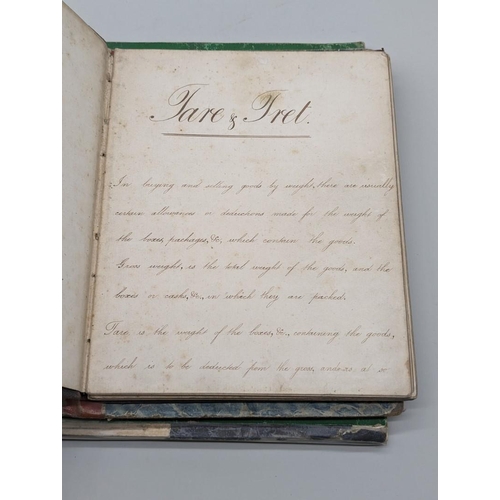 Tare & Tret.
In buying and selling goods by weight, there are usually
certain allowances or deductions made for the weight of
the boxes, packages, &c, which contain the goods.
Gross weight, is the total weight of the goods, and the
boxes or casks, &c., in which they are packed.
Tare is the weight of the boxes, &c., containing the goods,
which is to be deducted from the gross, and is at